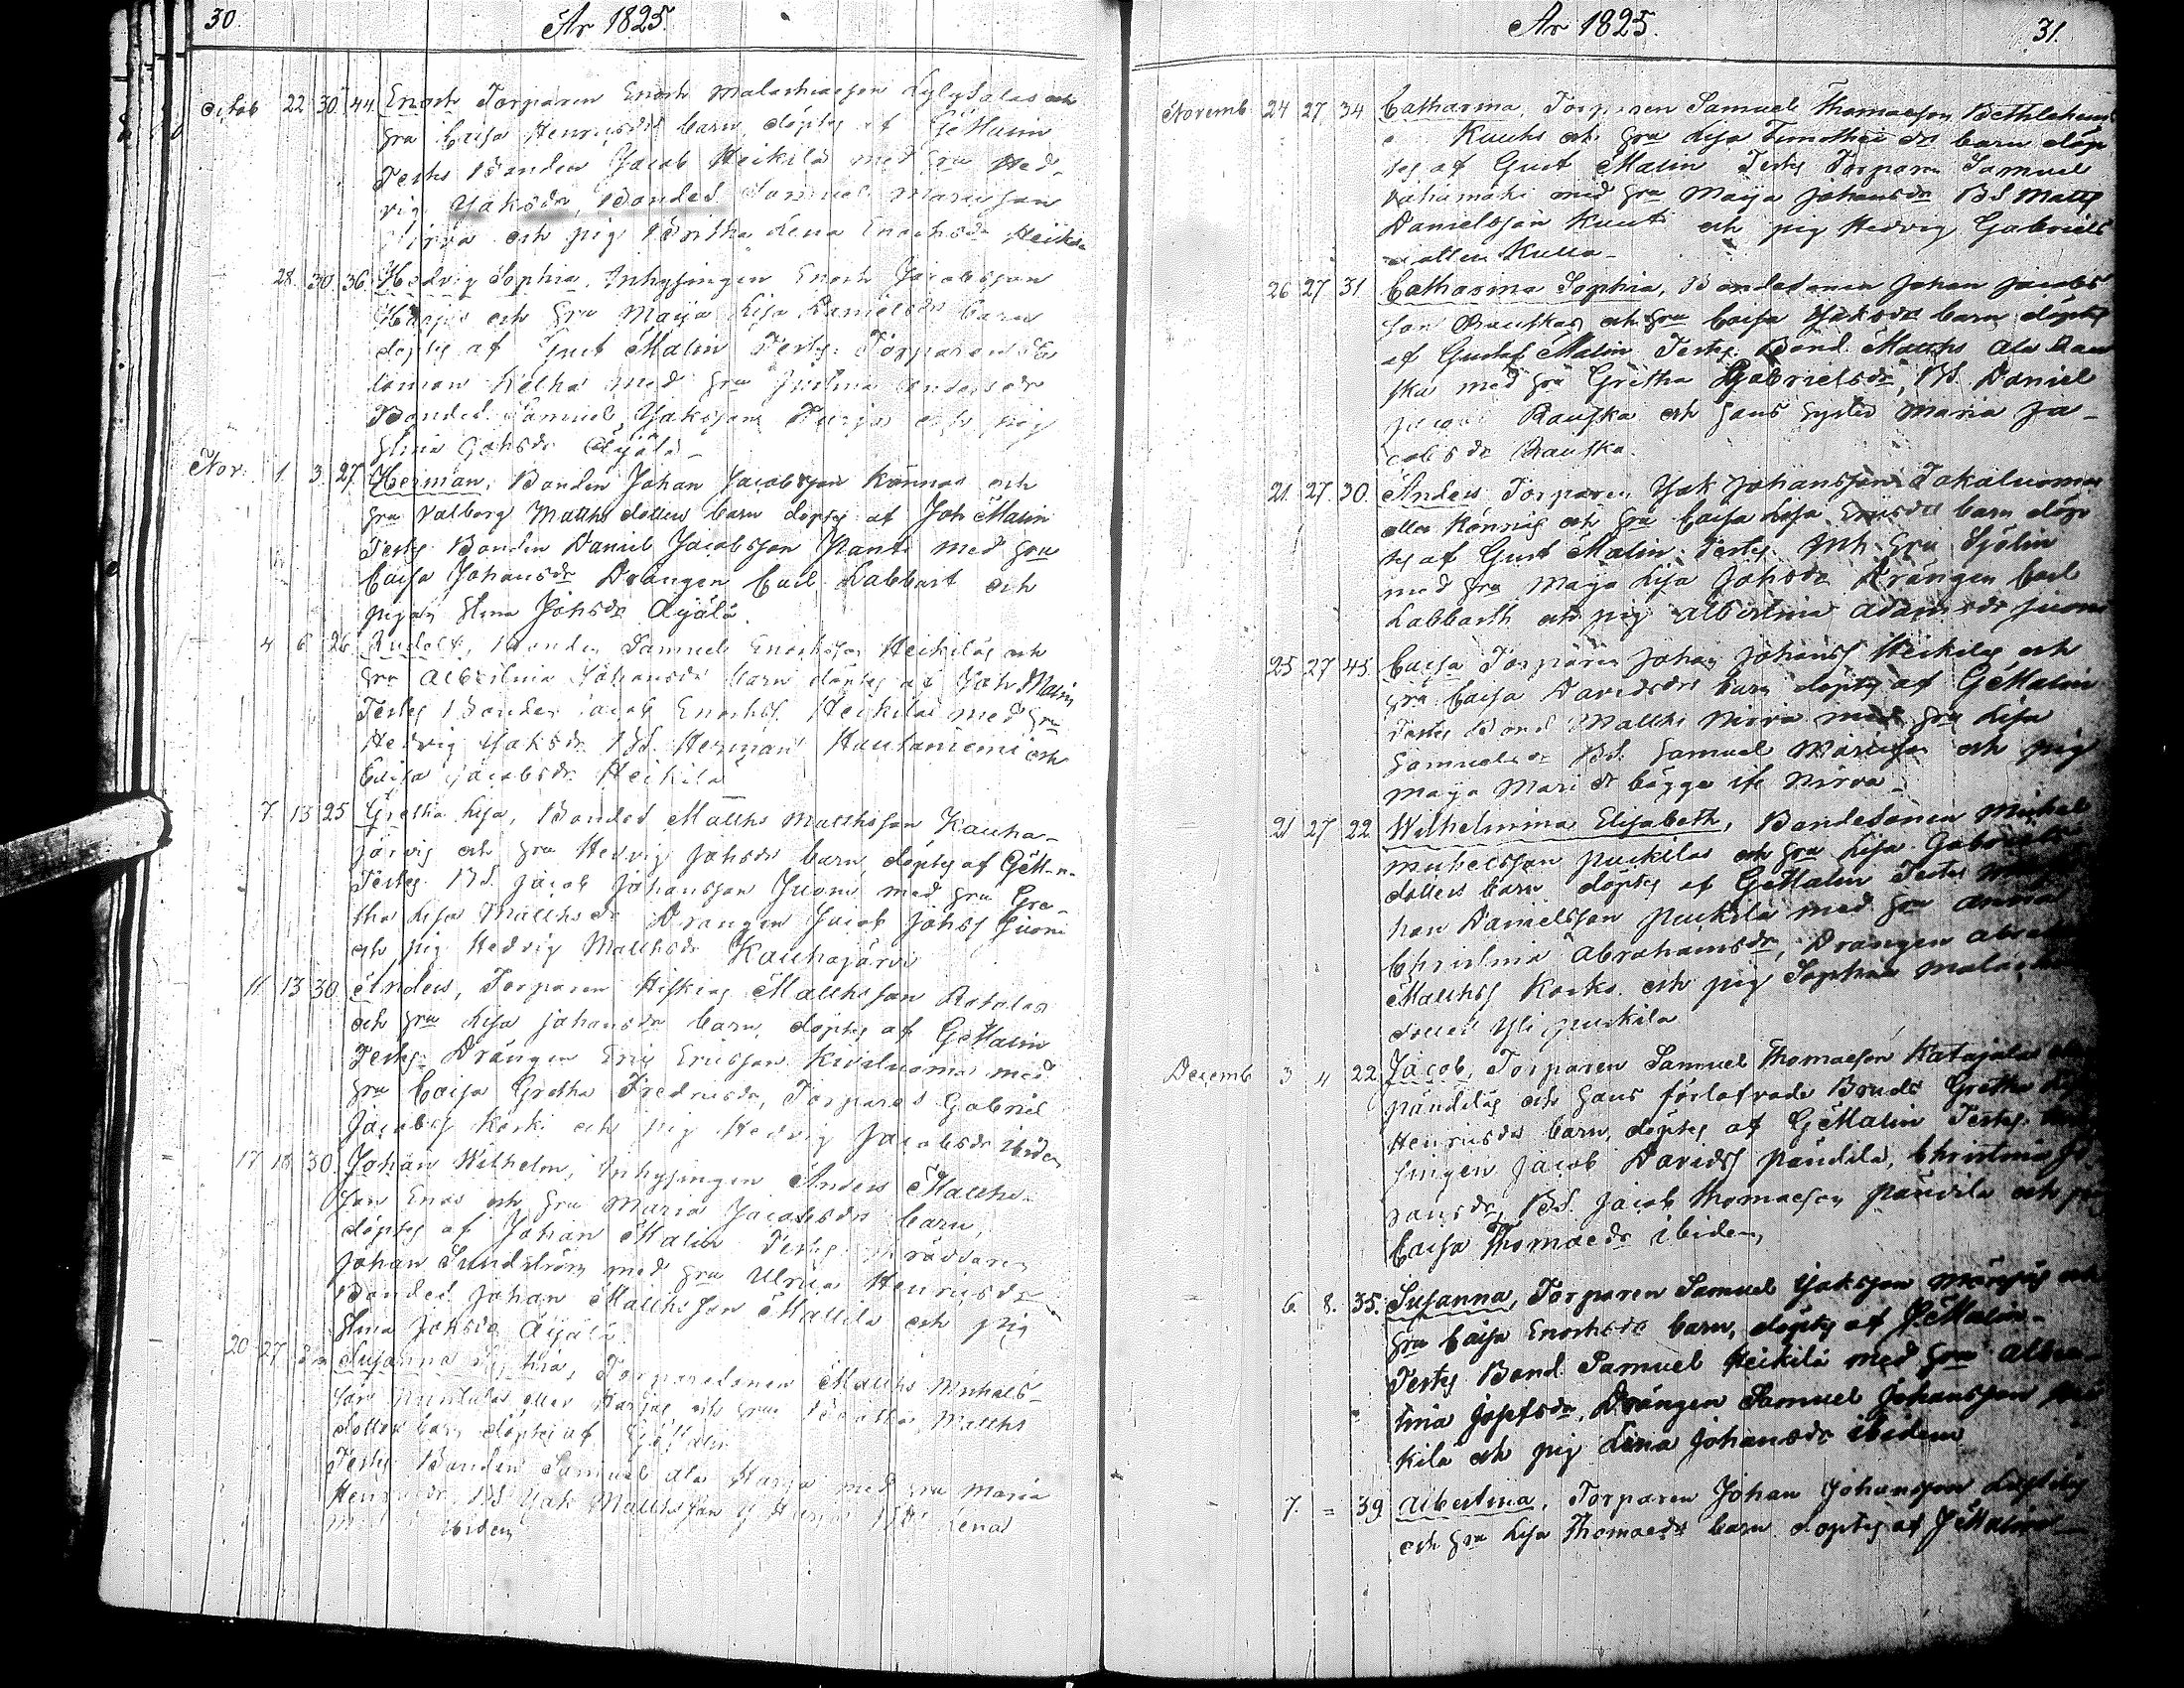 30. År 1825.
Octob 22 30 44. Enoch Torparen Enoch Malachiasson Lylysalas och
hu Caisa Henricsdr barn, döptes af GMalin
Testes Bonden Jacob Heikilä med hu Hed-
vig Jaksdr, Bondes. Samuel
och pig Britha Lena Enochsdr Heikilä
28. 30. 36. Hedvig Sophia, Inhysingen Enoch Jacobsson
Harju och hu Maija Lisa Danielsdr barn
döptes af Gust Malin Testes. Torparen
med hu Justina Andersdr
Bondes. Samuel Jaksson Harja och pig
Stina Johsdr Äijälä
Nov. 1. 3. 27. Herman, Bonden Johan Jacobsson Könnös och
hu Valborg Matths dotters barn döptes af Joh Malin
Testes Bonden Daniel Jacobsson Panti med hu
Caisa Johansdr Drängen Carl Labbart och
pigan Stina Johsdr Äijälä.
4 6 26 Rudolf, Bonden Samuel Enochsson Heikiläs och
hu Albertina Johansdr barn döptes af Joh Malin
Testes Bonden Jacob Enochss. Heikilä med hu
Hedvig Jaksdr BS. Herman Hautaniemi och
Caisa Jacobsdr Heikilä
7. 13 25 Gretha Lisa, Bondes Matths Matthsson Kauha-
järvis och hu Hedvig Johsdr barn, döptes af GM-n.
Testes. BS. Jacob Johansson Juoni med hu Gre-
tha Lisa Matthsdr Drängen Jacob Johss Juoni
och pig Hedvig Matthsdr Kauhajärvi
11 13 30 Anders, Torparen Hiskias Matthsson
och hu Lisa Johansdr barn, döptes af GMalin
Testes. Drängen Eric Ericsson Kiviluoma med
hu Caisa Gretha Fredricsdr, Torpares Gabriel
Jacobss Korki och pig Hedvig Jacobsdr ibidem
17 18 30. Johan Wilhelm, Inhysingen Anders Matths-
son Enas och hu Maria Jacobsdr barn,
döptes af Johan Malin Testes
Johan Sundström med hu Ulrica Henricsdr
Bondes. Johan Matthsson Mattila och pig
Stina Johsdr Äijälä.
20 27 Susanna Sophia, Torparesonen Matths Michels-
son eller Harjas och hu Britha Matths
dotter barn döptes af GMalin
Testes Bonden Samuel Ala Harja med hu Maria
BS Jak Matthsson Y Harja Lena
ibidem
År 1825. 31.
Novemb. 24 27 34 Catharina, Torparen Samuel Thomasson Bethlehem
Kuuts och hu Lisa Timothei dr barn döp
tes af Gust Malin Testes Torparen Samuel
med hu Maija Johansdr BS Matts
Danielsson Kuuti och pig Hedvig Gabriels
dotter Kulla
26 27 31. Catharina Sophia, Bondesonen Johan Jacobs
son Rauskas och hu Caisa Jaksdr barn döptes
af Gustaf Malin Testes. Bond. Matths Ala Rau
ska med hu Gretha Gabrielsdr, BS. Daniel
Jacobs Rauska och hans syster Maria Ja-
cobsdr Rauska.
21. 27. 30. Anders Torparen Jak Johansson Jakaluoma
eller Könnös och hu Caisa Lisa Ericsdr barn döp
tes af Gust Malin. Testes. Inh. Sjölin
med hu Maija Lisa Johsdr Drängen Carl
Labbarth och pig Albertina Adamsdr Juoni
25 27 45. Caisa Torparen Johan Johanss Heikiläs och
hu Caisa Davidsdr barn döptes af GMalin
Testes Bond Matths Nirva med hu Lisa
Samuelsdr BS. Samuel och pig
Maija Mari dr bägge ifr Nirva
21 27 22 Wilhelmina Elisabeth, Bondesonen Michel
Michelsson Puskilas och hu Lisa Gabriels
dotters barn döptes af GMalin Testes
Danielsson Puskila med hu Anna
Christina Abrahamsdr, Drängen
Matthss Korka och pig Sophia
dotter Yli Puskila
Decemb 3 4 22 Jacob, Torparen Samuel Thomasson Katajalas eller
Pändiläs och hans förlofvade Brud Gretha
Henricsdr barn, döptes af GMalin Testes.
singen Jacob Davidss Pändilä, Christina Jo-
hansdr, BS. Jacob Thomasson Pändilä och pig
Caisa Thomaedr ibidem,
6. 8. 35. Susanna, Torparen Samuel Jaksson och
hu Caisa Enochsdr barn, döptes af JMalin-
Testes Bond Samuel Heikilä med hu Alber-
tina Josefsdr, Drängen Samuel Johansson Hei
kilä och pig Lena Johansdr ibidem
7. = 39 Albertina, Torparen Johan Johansson
och hu Lisa Thomaedr barn döptes af JMalin